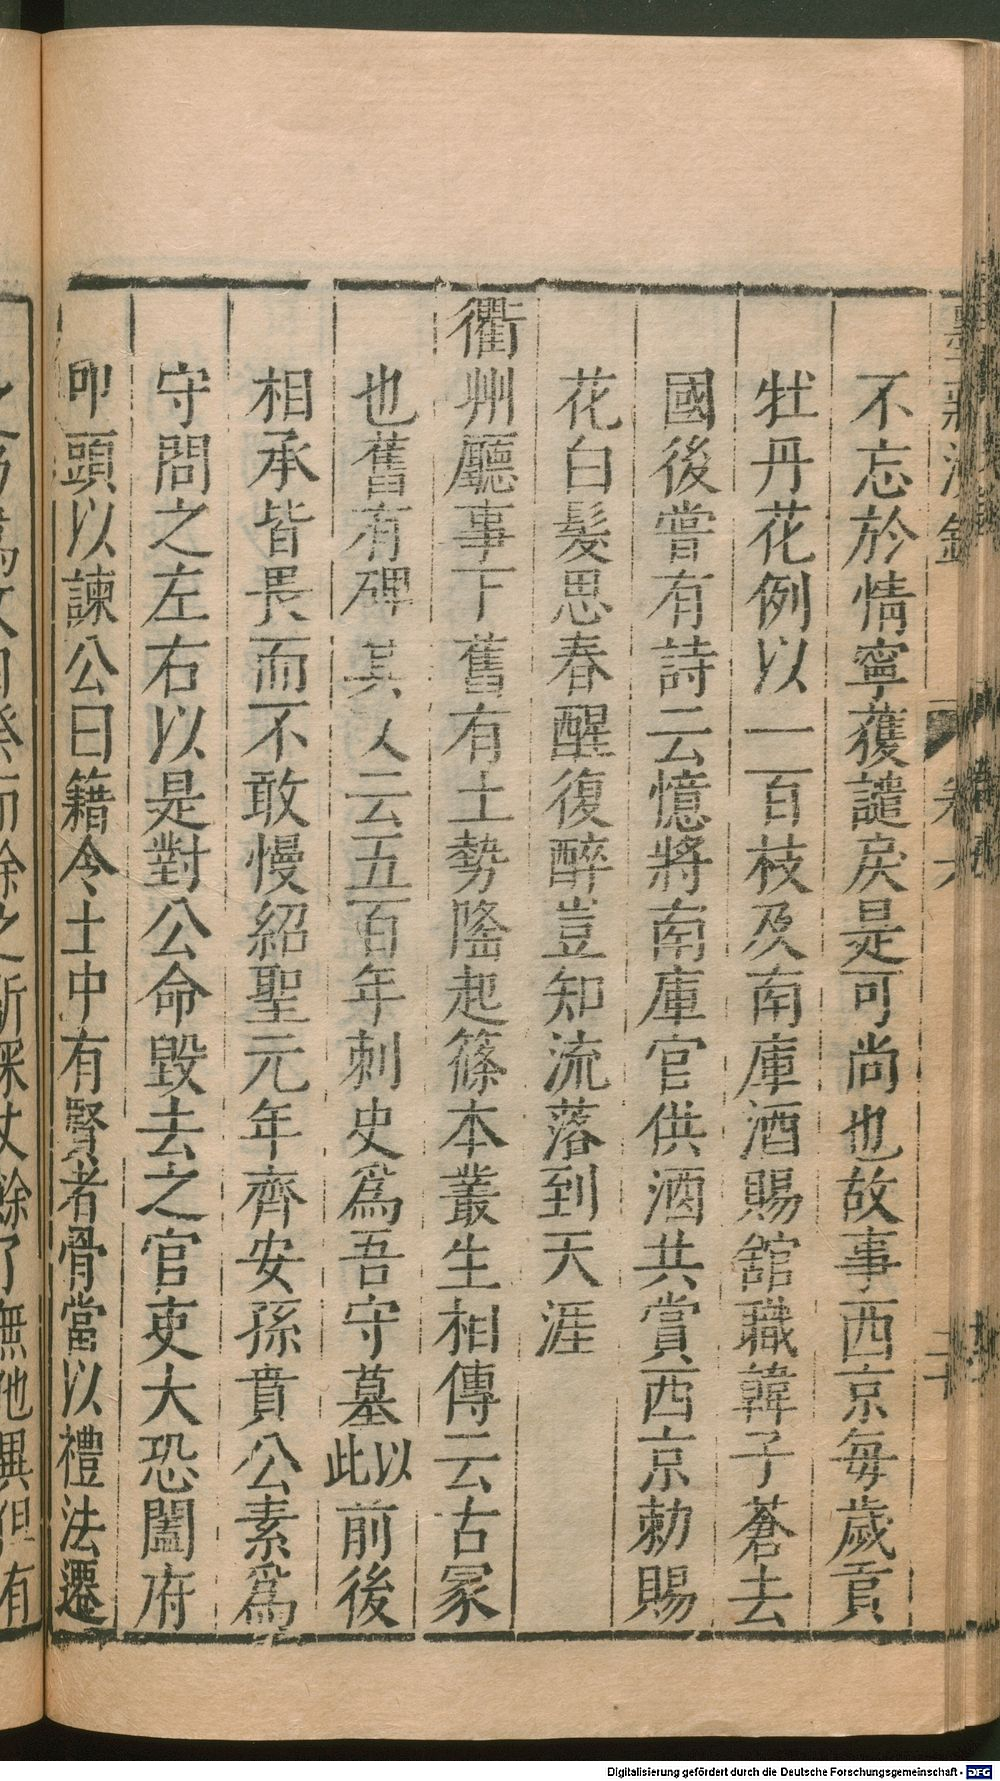 不忘於情寧獲譴戾是可尚也故事西京每歲貢
牡丹花例以一百枝及南庫酒賜舘職韓子蒼去
國後嘗有詩云憶將南庫官供酒共賞西京勅賜
花白髮思春醒復醉豈知流落到天涯
衢州廳事下舊有土勢隆起篠本叢生相傳云古冢
也舊有碑其文云五百年刺史爲吾守墓以此前後
相承皆畏而不敢慢紹聖元年齊安孫賁公素爲
守問之左右以是對公命毀去之官吏大恐闔府
叩頭以諫公曰籍令土中有賢者骨當以禮法遷
Digitalisierung gefördert durch die Deutsche Forschungsgemeinschaft - DFG